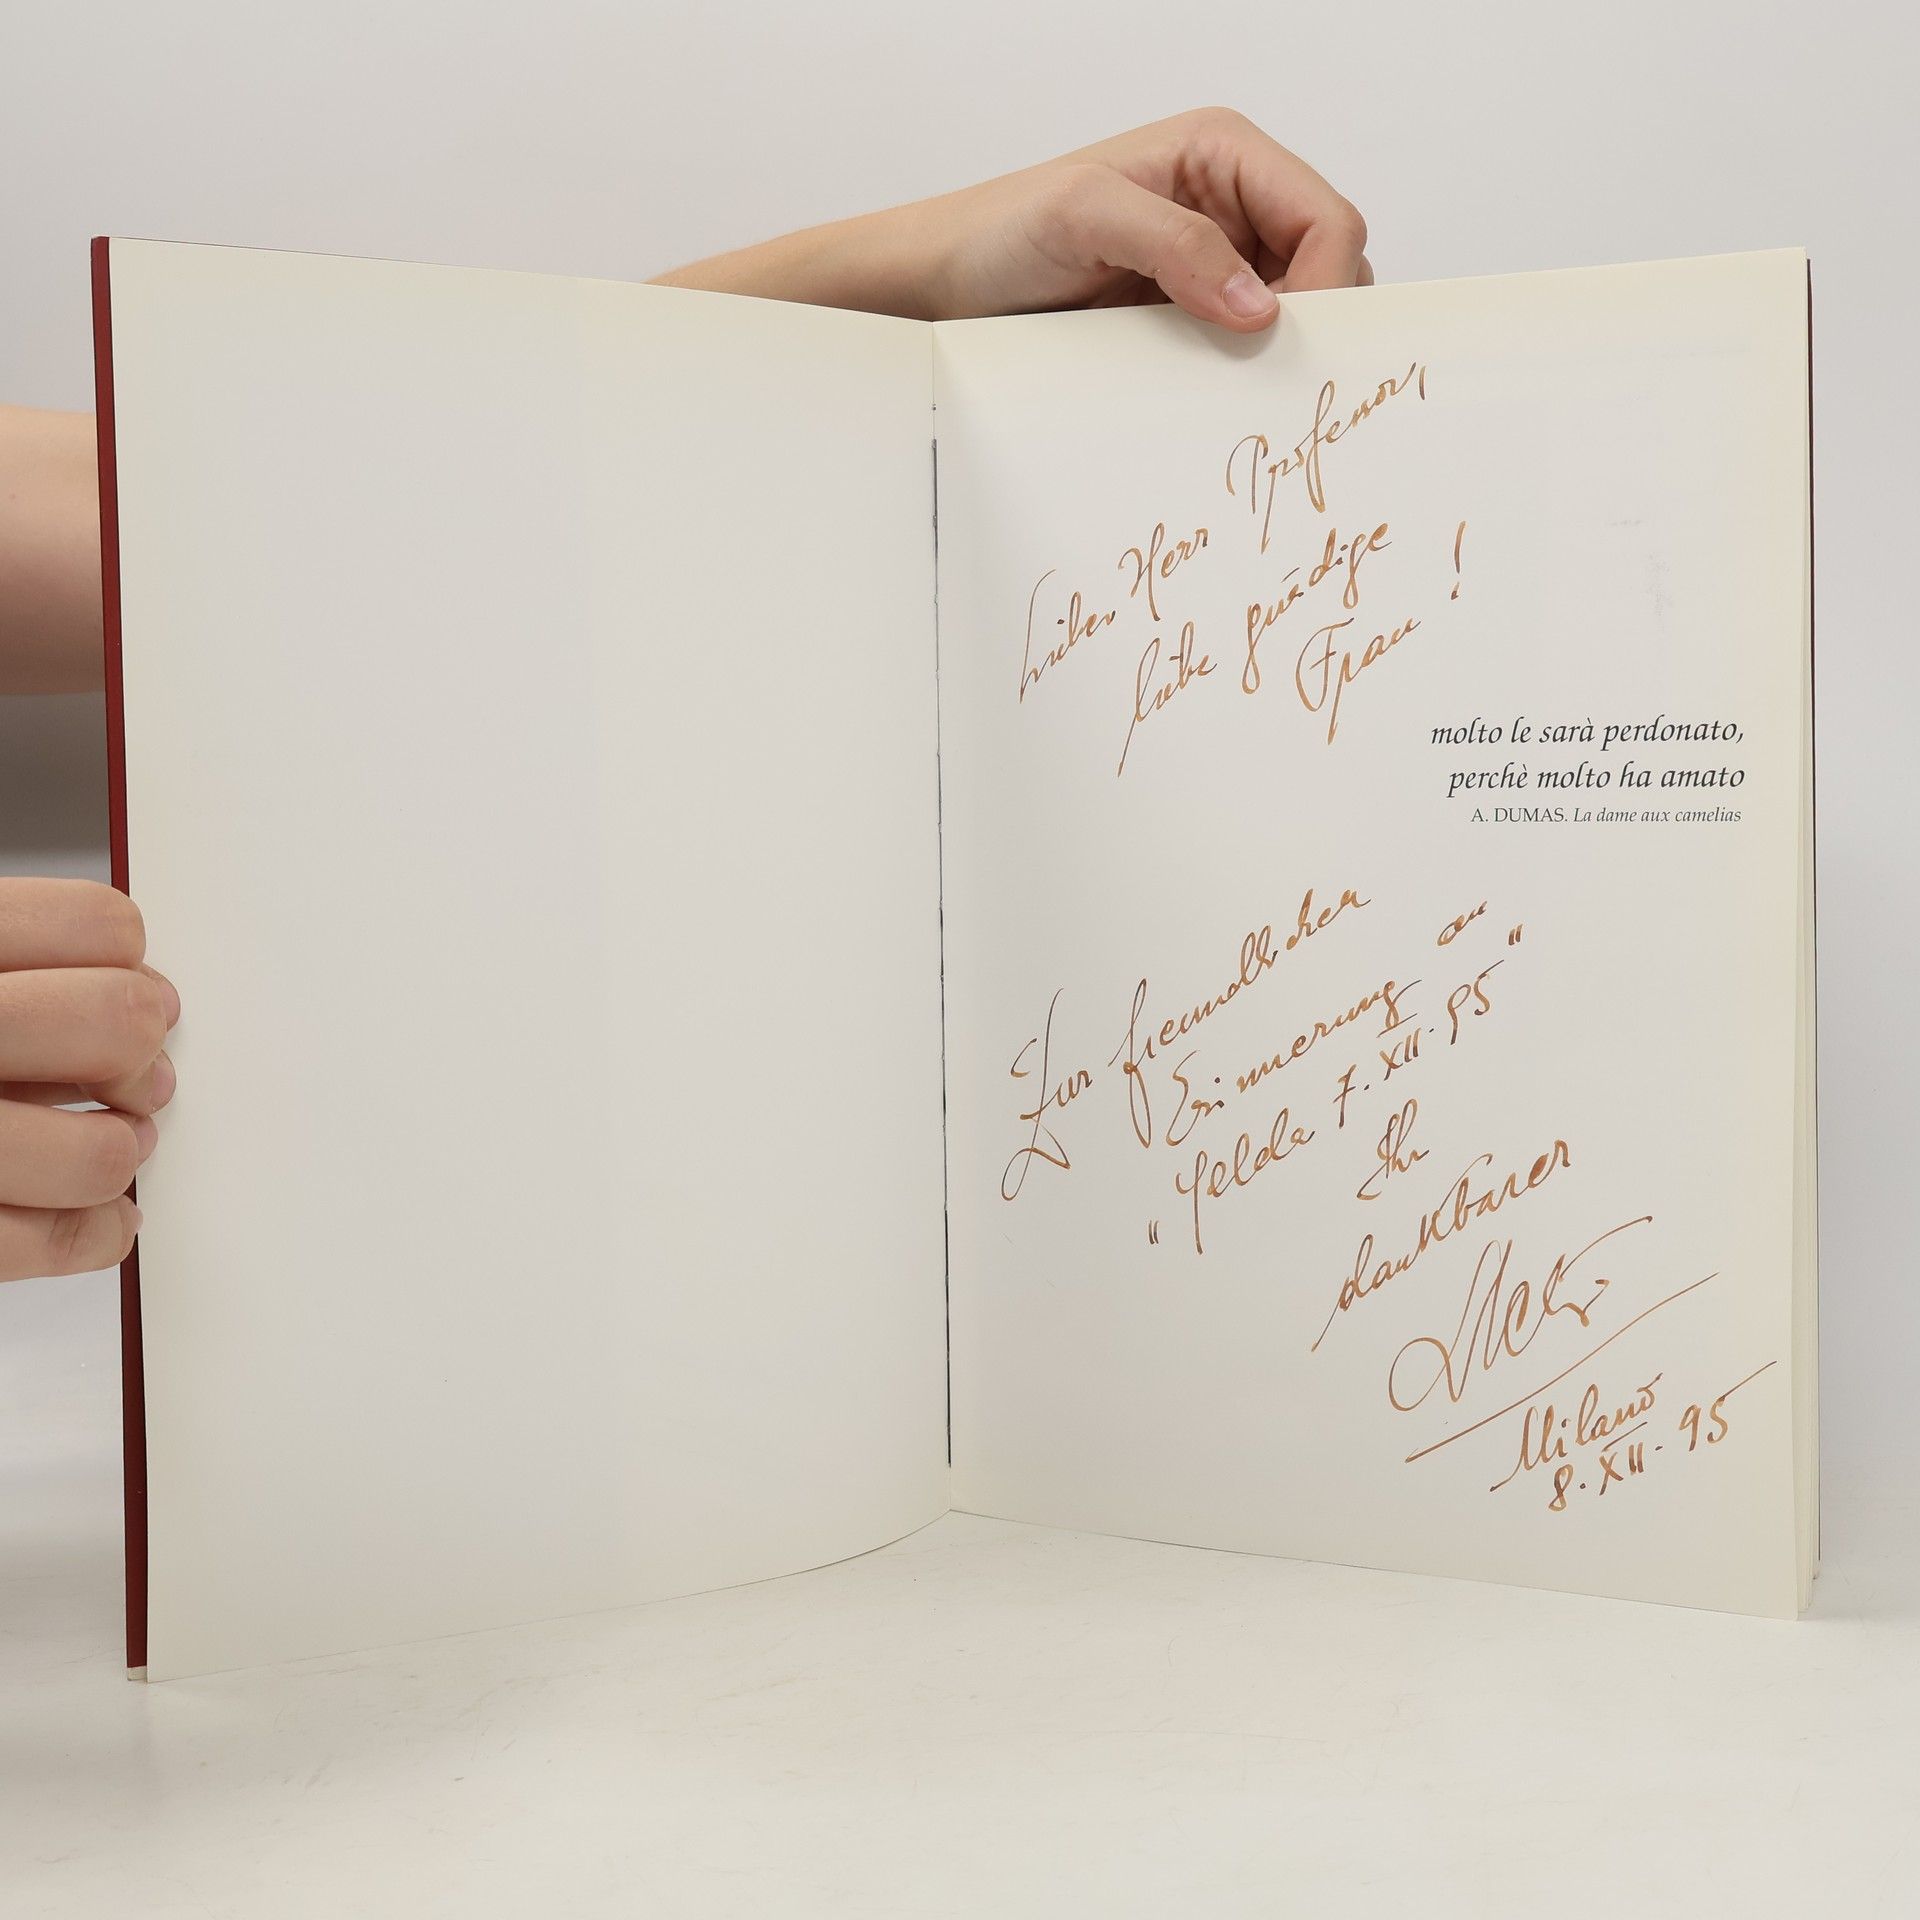 Lieber Herr Professor,
liebe gnädige
Frau !
molto le sarà perdonato,
perchè molto ha amato
A. DUMAS. La dame aux camelias
Zur freundlichen
Erinnerung an
" Gelda 7. XII. 95 "
Ihr
dankbarer
Milano
8. XII. 95